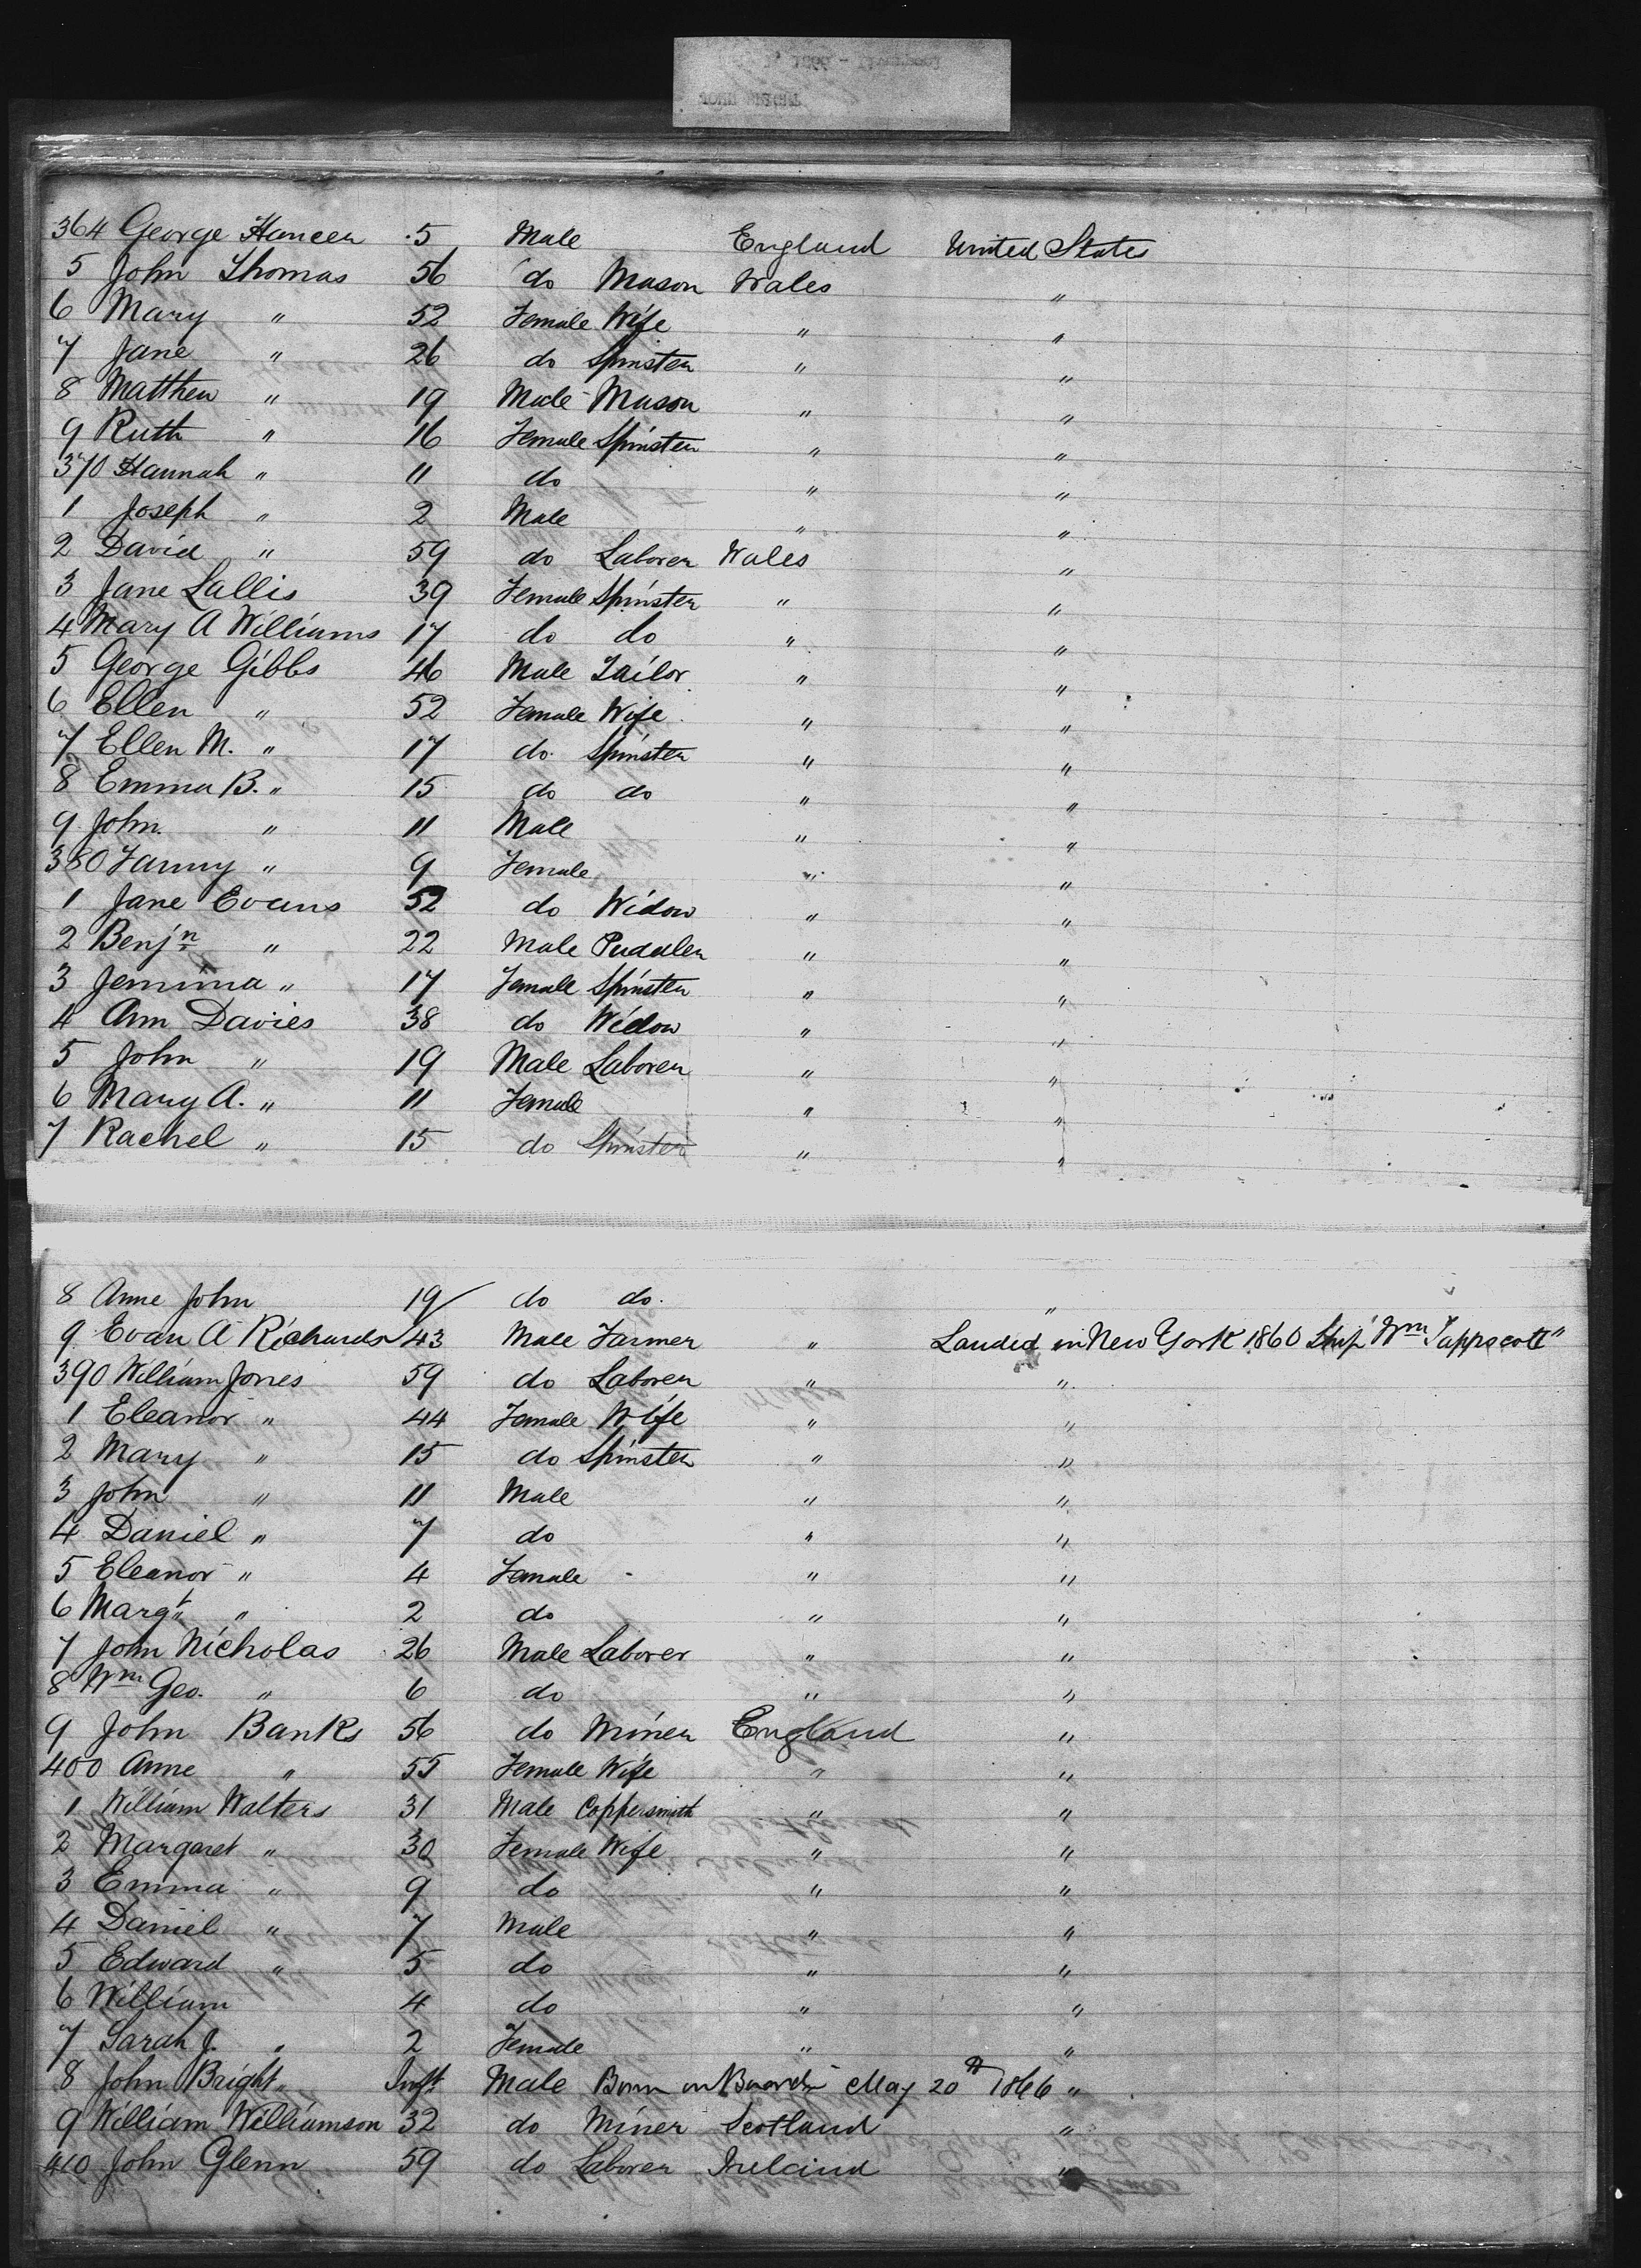 364 George Hancen 5 Male England United States
5 John Thomas 56 do Mason Wales "
6 Mary " 52 Female Wife " "
7 Jane " 26 do Spinster " "
8 Matthew " 19 Male Mason " "
9 Ruth " 16 Female Spinster " "
370 Hannah " 11 do " "
1 Joseph " 2 Male " "
2 David " 59 do Laborer Wales "
3 Jane Lallis 39 Female Spinster " "
4 Mary A Williams 17 do do " "
5 George Gibbs 46 Male Tailor " "
6 Ellen " 52 Female Wife " "
7 Ellen M. " 17 do Spinster " "
8 Emma B. " 15 do do " "
9 John " 11 Male " "
380 Fanny " 9 Female " "
1 Jane Evans 52 do Widow " "
2 Benjn " 22 Male Puddler " "
3 Jemima " 17 Female Spinster " "
4 Ann Davies 38 do Widow " "
5 John " 19 Male Laborer " "
6 Mary A. " 11 Female " "
7 Rachel " 15 do Spinster " "
8 Anne John 19 do do. " "
9 Evan A Richards 43 Male Farmer " Landed in New York 1860 Ship "Wm Tappscott"
390 William Jones 59 do Laborer " "
1 Eleanor " 44 Female Wife " "
2 Mary " 15 do Spinster " "
3 John " 11 Male " "
4 Daniel " 7 do " "
5 Eleanor " 4 Female " "
6 Margt " 2 do " "
7 John Nicholas 26 Male Laborer " "
8 Wm Geo. " 6 do " "
9 John Banks 56 do Miner England "
400 Anne " 55 Female Wife " "
1 William Walters 31 Male Coppersmith " "
2 Margaret " 30 Female Wife " "
3 Emma " 9 do " "
4 Daniel " 7 Male " "
5 Edward " 5 do " "
6 William 4 do " "
7 Sarah J. " 2 Female " "
8 John Bright Inft Male Born on Board May 20th 1866 "
9 William Williamson 32 do Miner Scotland "
410 John Glenn 59 do Laborer Ireland "